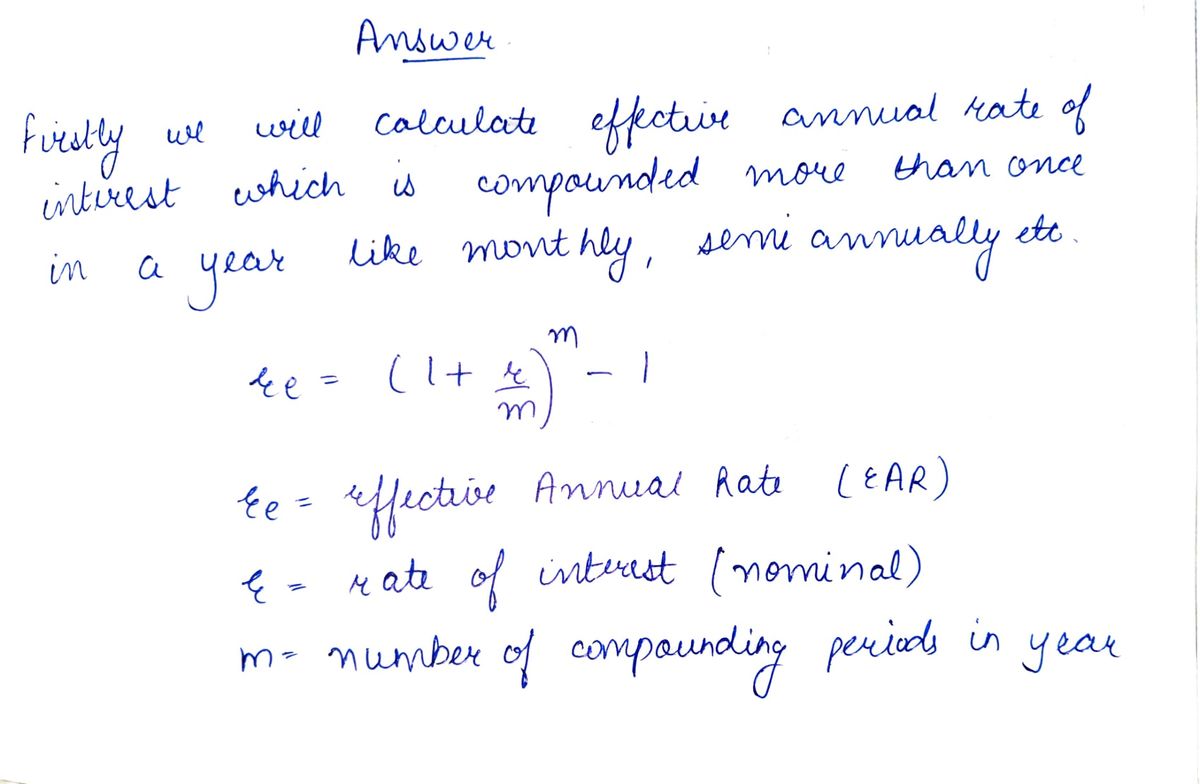 Answer
firstly we will calculate effective annual rate of
interest which is compounded more than once
in a year like monthly, semi annually etc.
re = (1 + r/m)^m - 1
re = effective Annual Rate (EAR)
r = rate of interest (nominal)
m = number of compounding periods in year